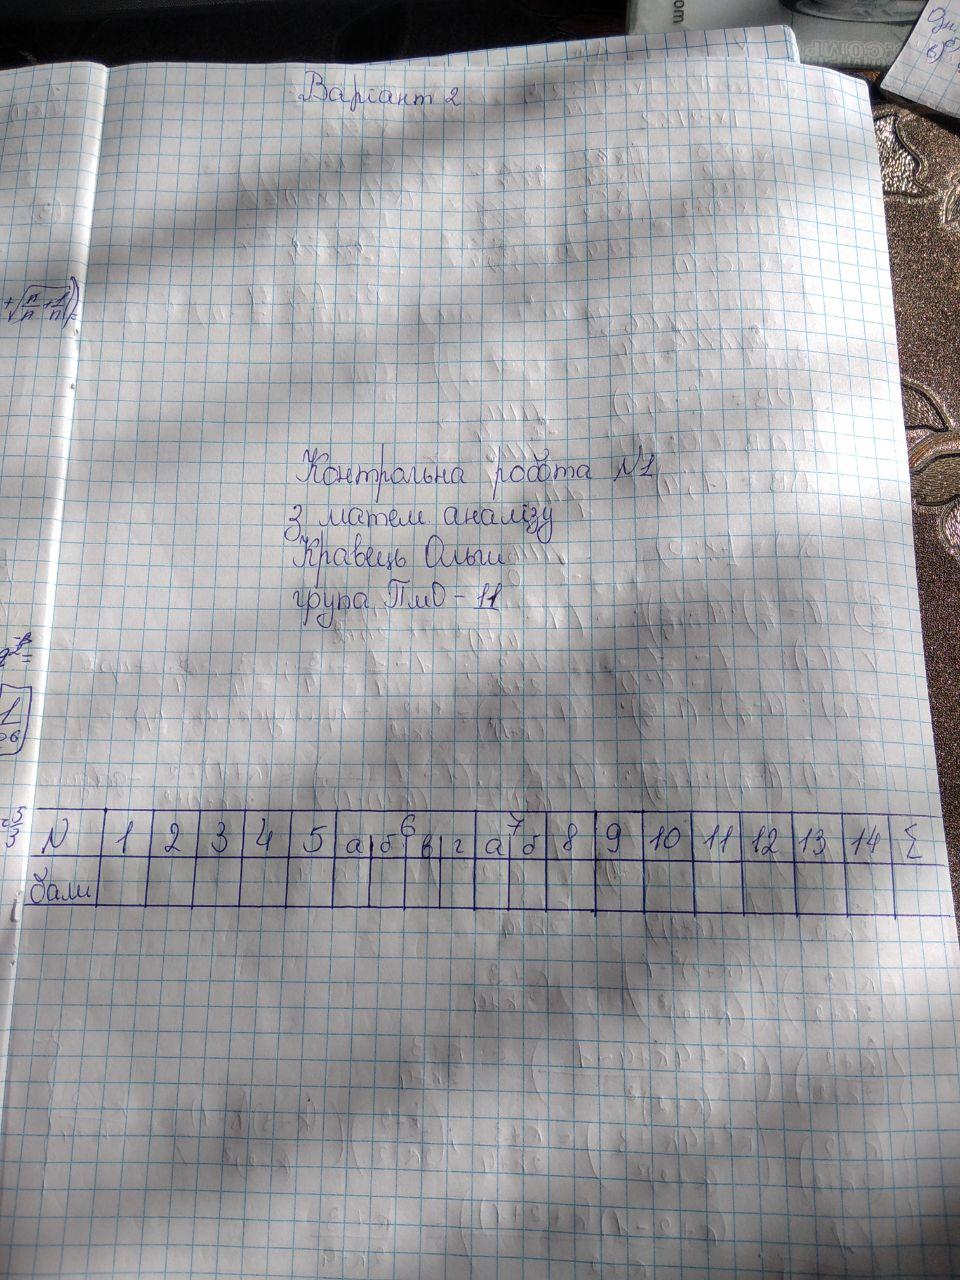 Варіант 2
Контрольна робота №1
з матем. аналізу
Кравець Ольги
група ПМО - 11
N 1 2 3 4 5 а б 6 в г а 7 б 8 9 10 11 12 13 14 Σ
бали